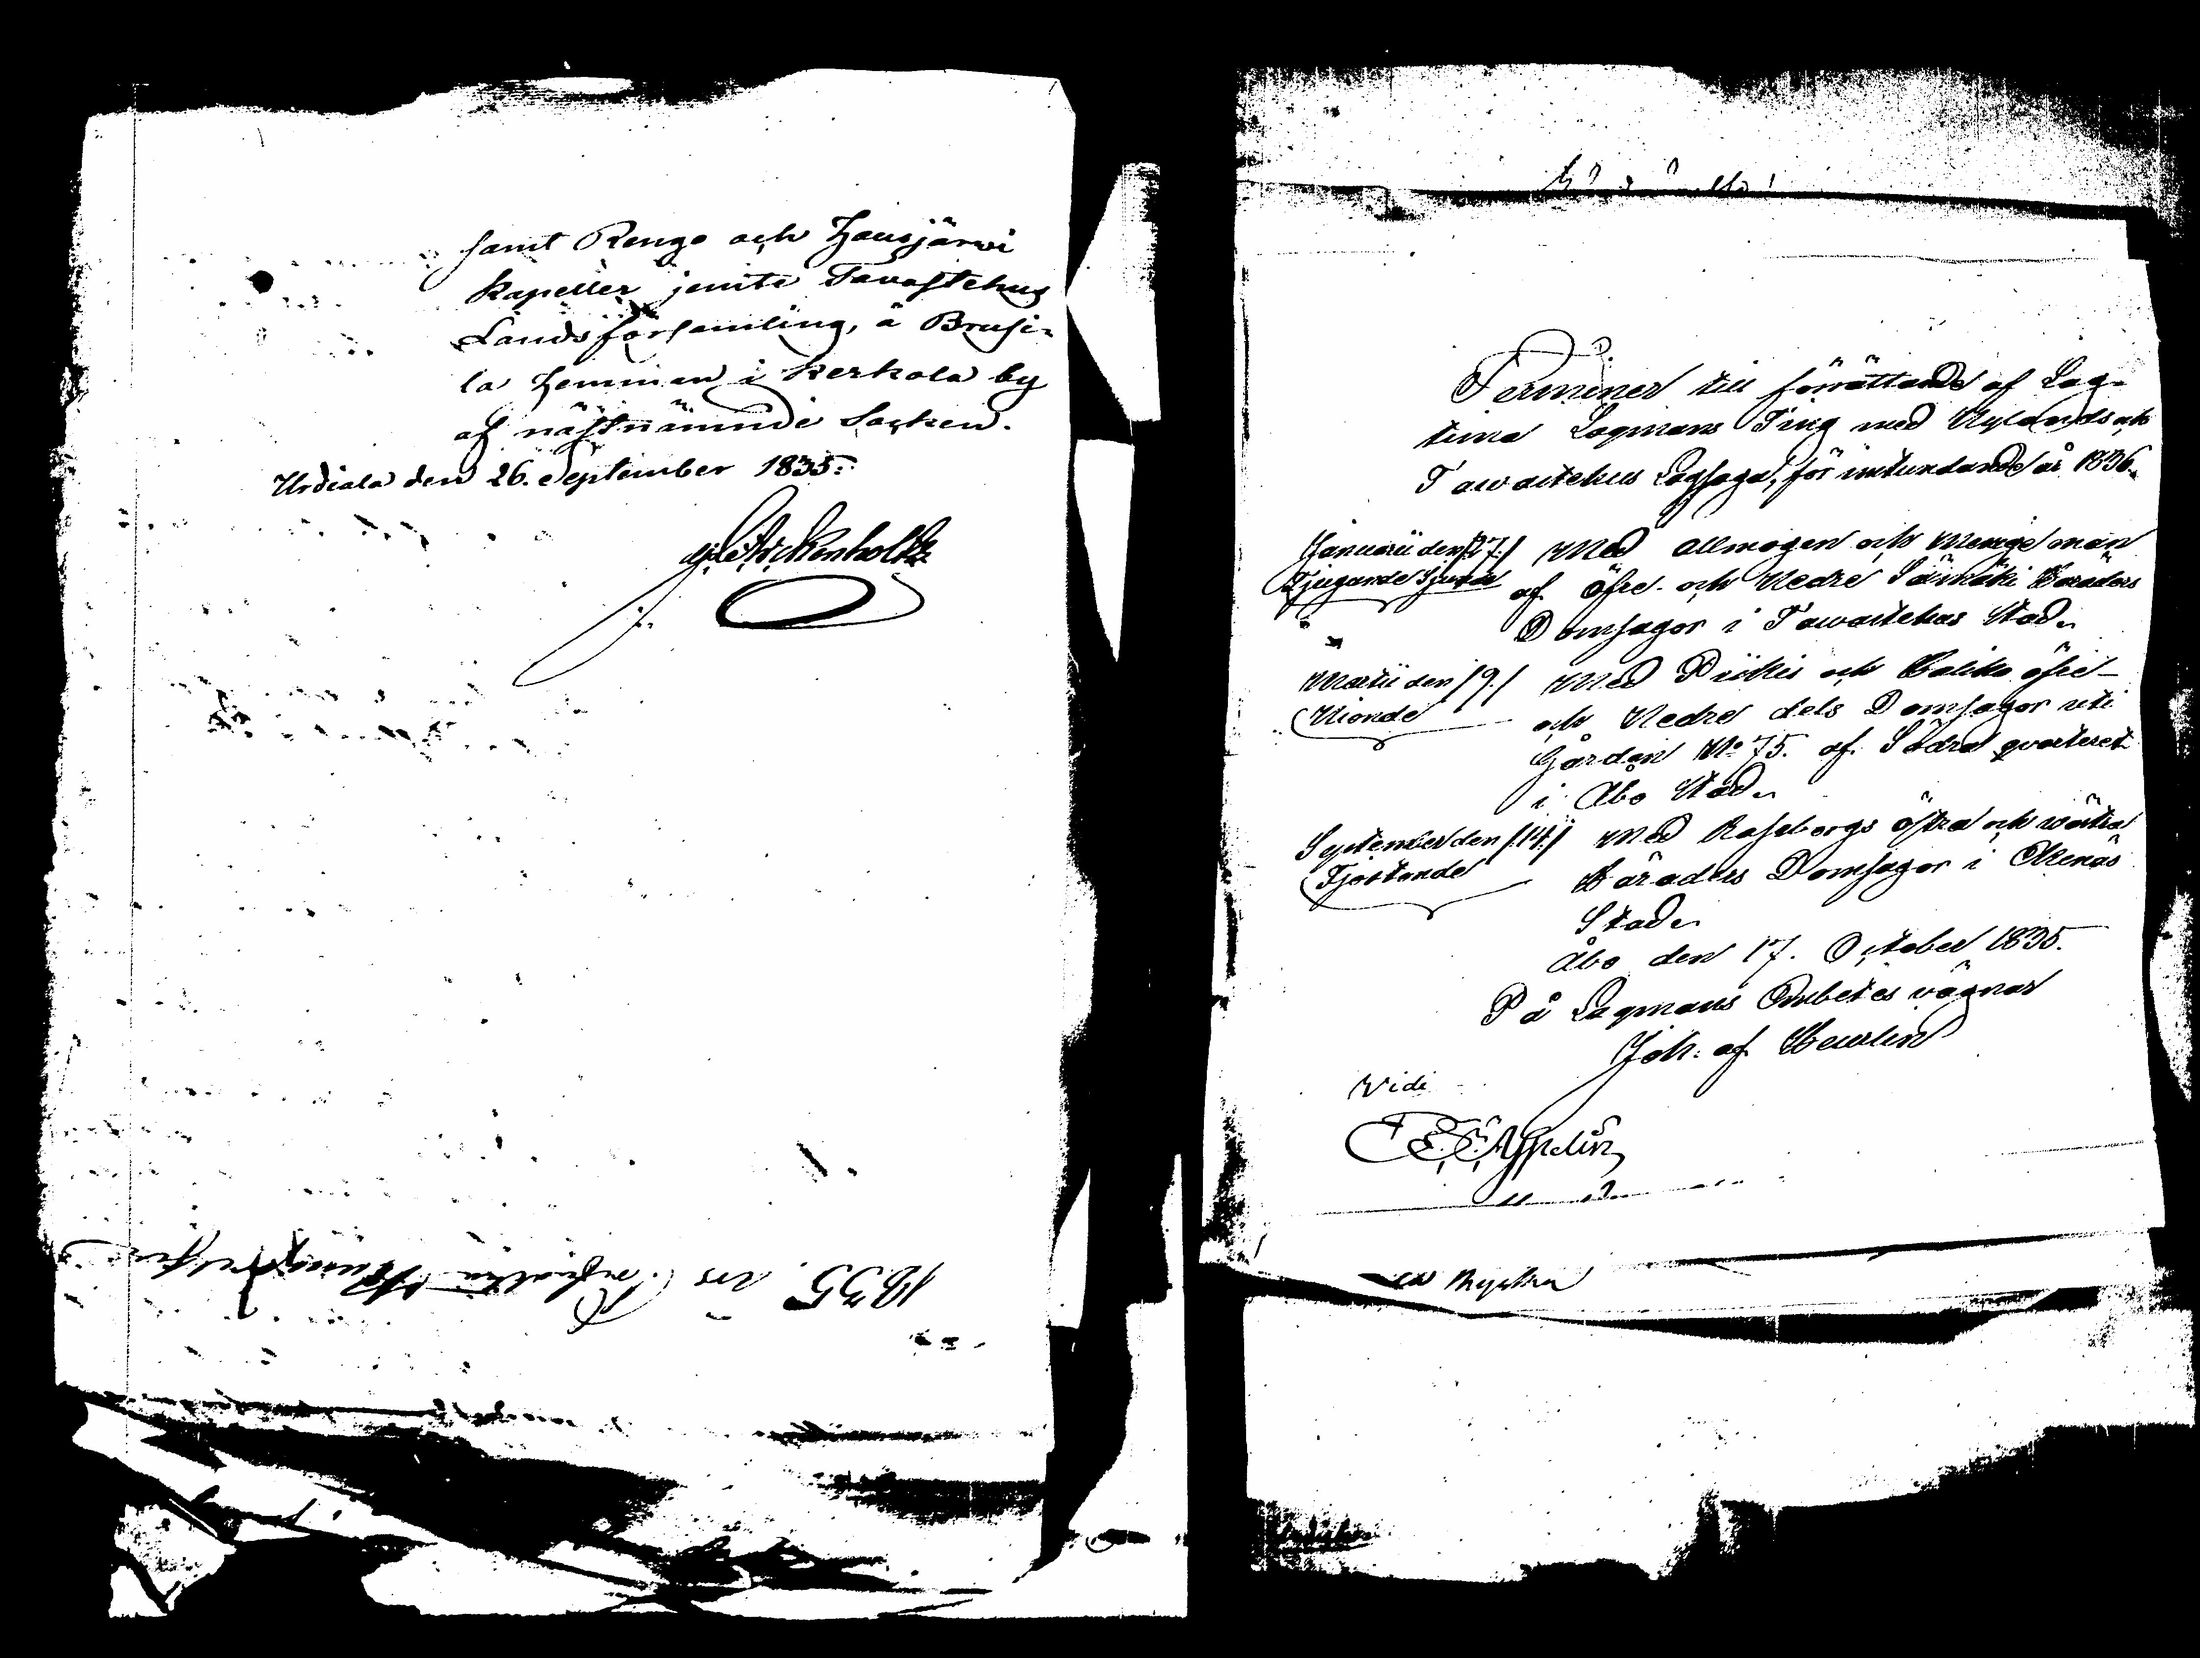 samt Rengo och Hausjärwi
kapeller jemte Tavastehus
Landsförsamling, å Brusi-
la hemman i Kerkola by
af nästnämnde Socken.
Urdiala den 26. September 1835.
Terminer till förrättande af Lag-
tima Lagmans Ting med Nylands och
Tawastehus Lagsaga, för instundande år 1836.
Januarii den /27./ Med Allmogen och Menige man
Tjugunde Sjunde af Öfre- och Nedre Särmäki Härads
Domsagor i Tawastehus Stad.
Martii den /9./ Med Piikkis och Haliko öfre-
Nionde och Nedre dels Domsagor uti
Gården No 75. af Södra qvarteret
i Åbo Stad.
September den /14./ Med Raseborgs östra och wästra
Fjortonde Häraders Domsagor i Ekenäs
Stad.
Åbo den 17. October 1835.
På Lagmans Embetes vägnar
Joh: af
Vidi
1835 års